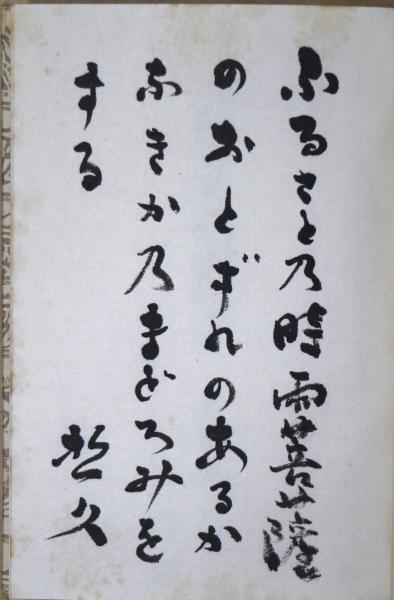 ふるさと乃時雨菩薩
のおとずれのあるか
なきか乃まどろみを
する
哲久